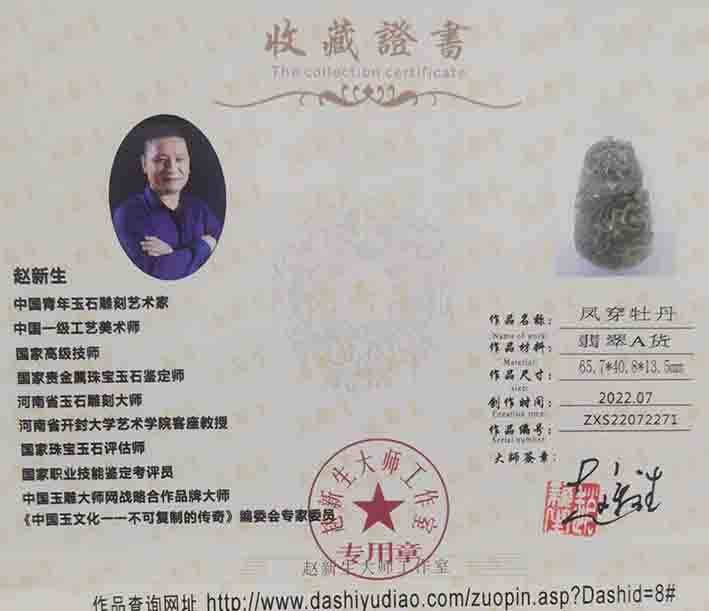 收藏證書
The collection certificate
赵新生
中国青年玉石雕刻艺术家
中国一级工艺美术师
国家高级技师
国家贵金属珠宝玉石鉴定师
河南省玉石雕刻大师
河南省开封大学艺术学院客座教授
国家珠宝玉石评估师
国家职业技能鉴定考评员
中国玉雕大师网战略合作品牌大师
《中国玉文化一一不可复制的传奇》编委会专家委员
作品名称： 凤穿牡丹
Name of work:
作品材料： 翡翠A货
Material:
作品尺寸： 65.7*40.8*13.5mm
size:
创作时间： 2022.07
Creation time:
作品编号： ZXS22072271
Serial number:
大师签章：
赵新生大师工作室
专用章
赵新生大师工作室
作品查询网址 http://www.dashiyudiao.com/zuopin.asp?Dashid=8#